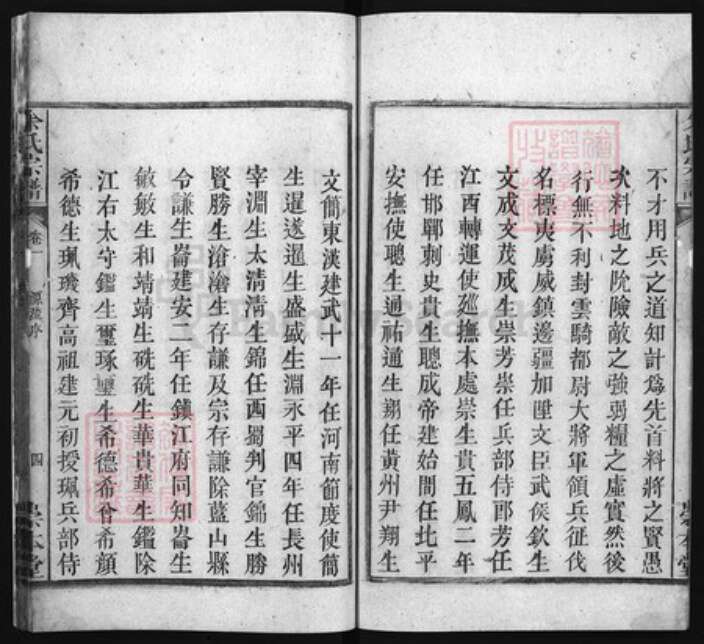 不才用兵之道知計爲先首料將之賢愚
次料地之阬險敵之強弱糧之虛實然後
行無不利封雲騎都尉大將軍領兵征伐
名標夷虜威鎮邊疆加陞文臣武侯欽生
文成文茂成生崇芳崇任兵部侍郎芳任
江西轉運使廵撫本處崇生貴五鳳二年
任邯鄲刺史貴生聰成帝建始間任北平
安撫使聰生通祐通生翔任黃州尹翔生
文簡東漢建武十一年任河南節度使簡
生暹遂暹生盛盛生淵永平四年任長州
宰淵生太清清生錦任西蜀判官錦生勝
賢勝生滄滄生存謙及宗存謙除藍山縣
令謙生崙建安二年任鎮江府同知崙生
敏敏生和靖靖生硄硄生華貴華生鑑除
江右太守鑑生璽琢璽生希德希曾希顏
希德生珮璣齊高祖建元初授珮兵部侍
余氏宗譜
卷一
源流序
四